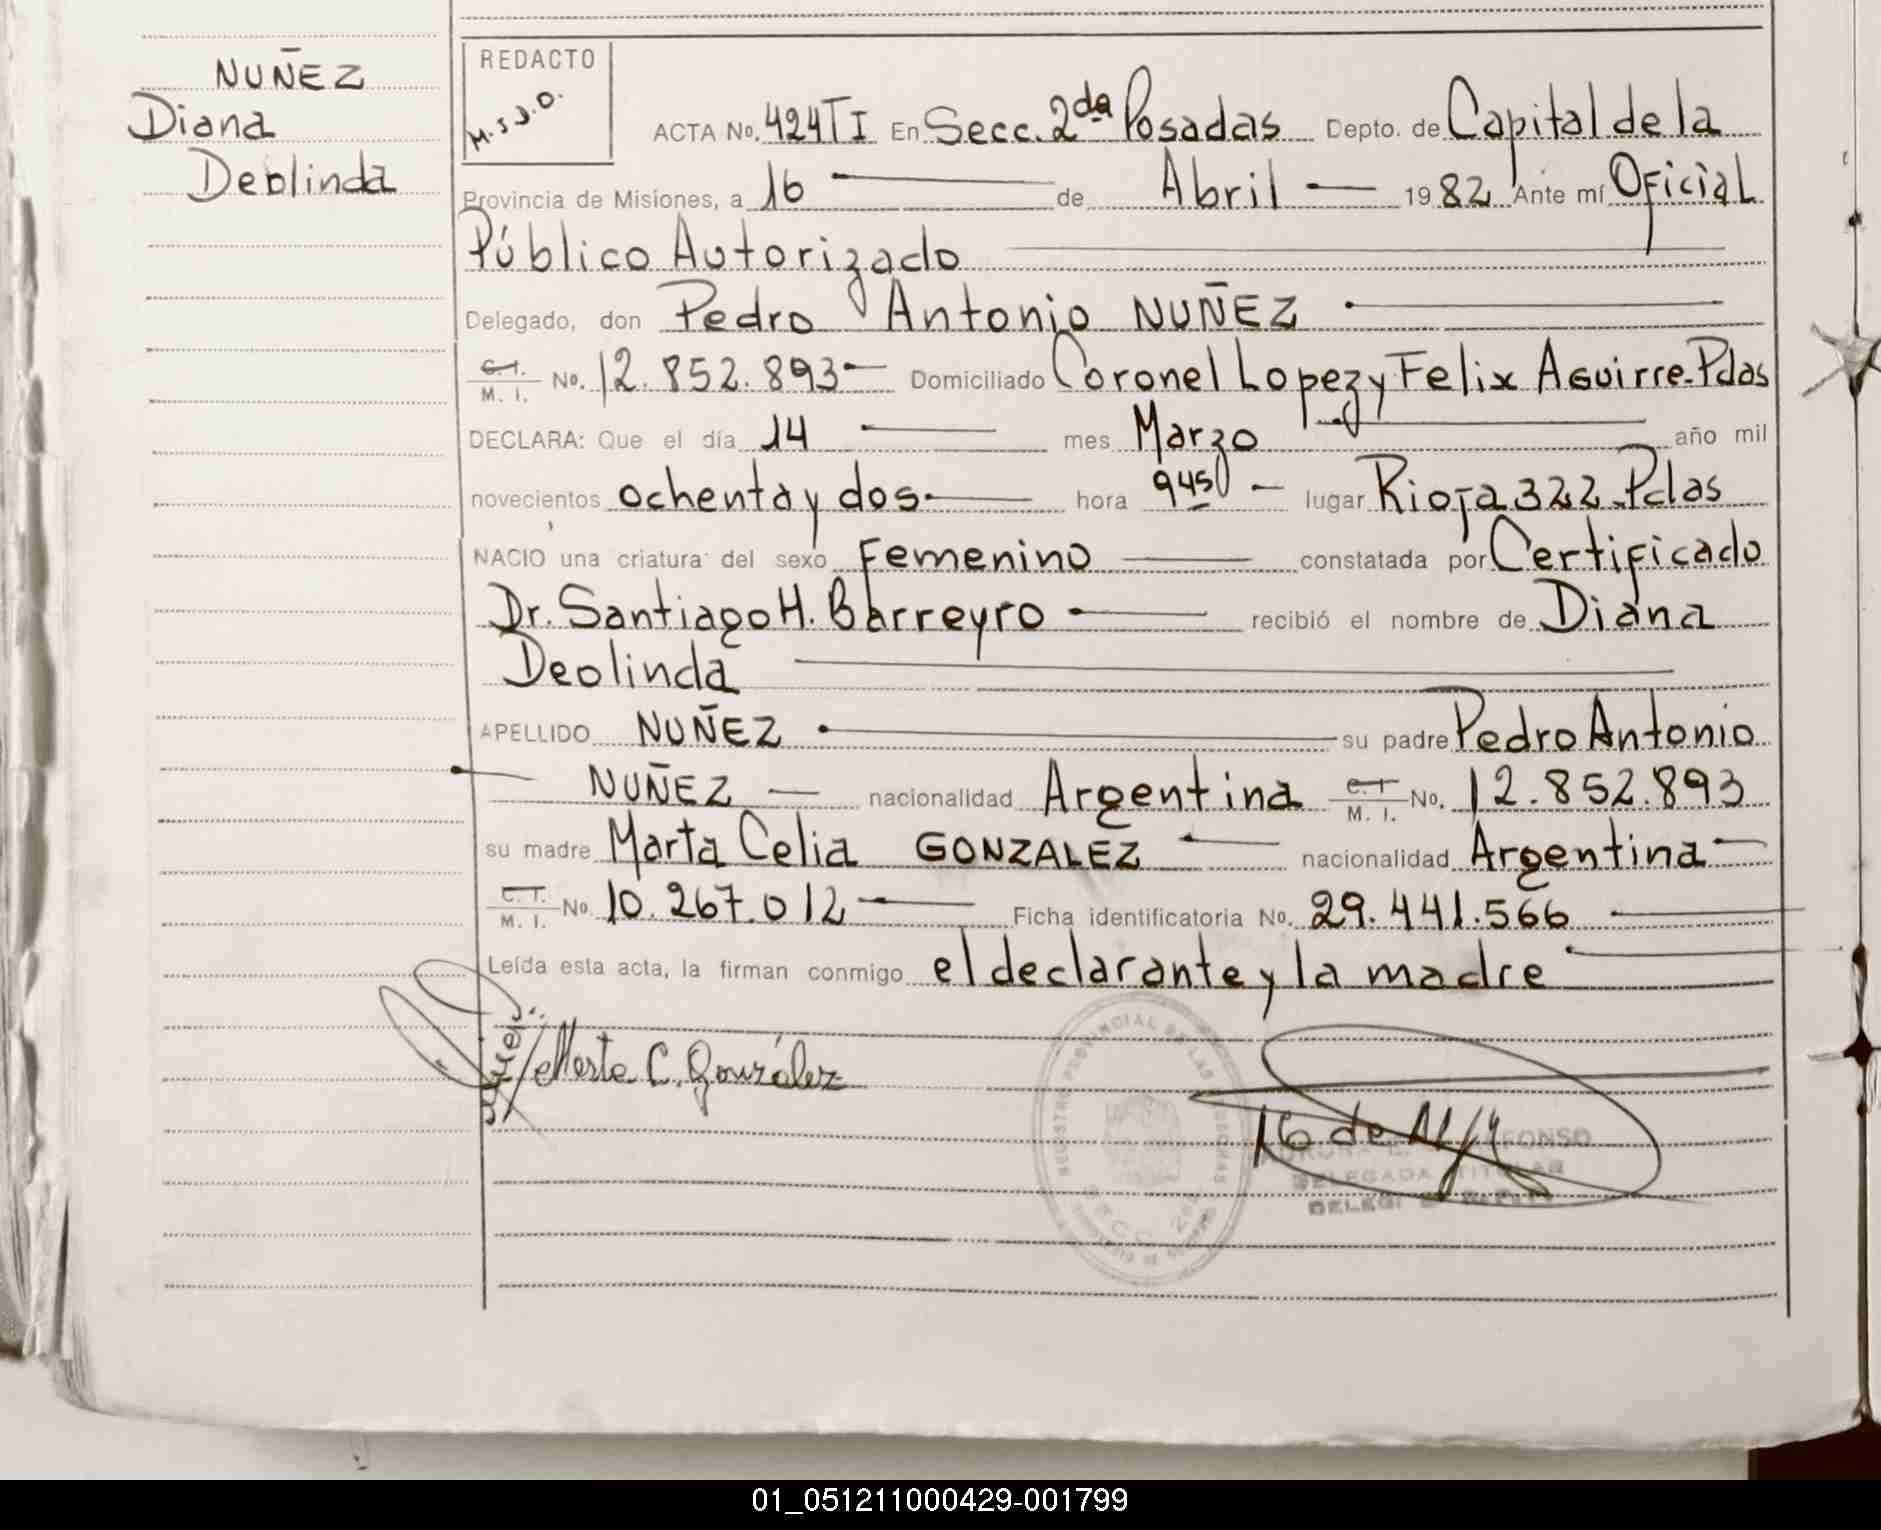 NUÑEZ
Diana
Deolinda
REDACTO
M.S.J.O.
ACTA No. 424TI En Secc. 2da Posadas Depto. de Capital de la
Provincia de Misiones, a 16 de Abril 1982 Ante mí Oficial
Público Autorizado
Delegado, don Pedro Antonio NUÑEZ
C.I. M. I. No. 12.852.893 Domiciliado Coronel Lopez y Felix Aguirre-Pdas
DECLARA: Que el día 14 mes Marzo año mil
novecientos ochenta y dos hora 9450 lugar Rioja 322-Pdas
NACIO una criatura del sexo Femenino constatada por Certificado
Dr. Santiago H. Barreyro recibió el nombre de Diana
Deolinda
APELLIDO NUÑEZ su padre Pedro Antonio
NUÑEZ nacionalidad Argentina C.I. M. I. No. 12.852.893
su madre Marta Celia GONZALEZ nacionalidad Argentina
C. I. M. I. No. 10.267.012 Ficha identificatoria No. 29.441.566
Leída esta acta, la firman conmigo el declarante y la madre
Marta C. González
REGISTRO PROVINCIAL DE LAS PERSONAS
SECC. 2da
DELEGADA TITULAR
01_051211000429-001799